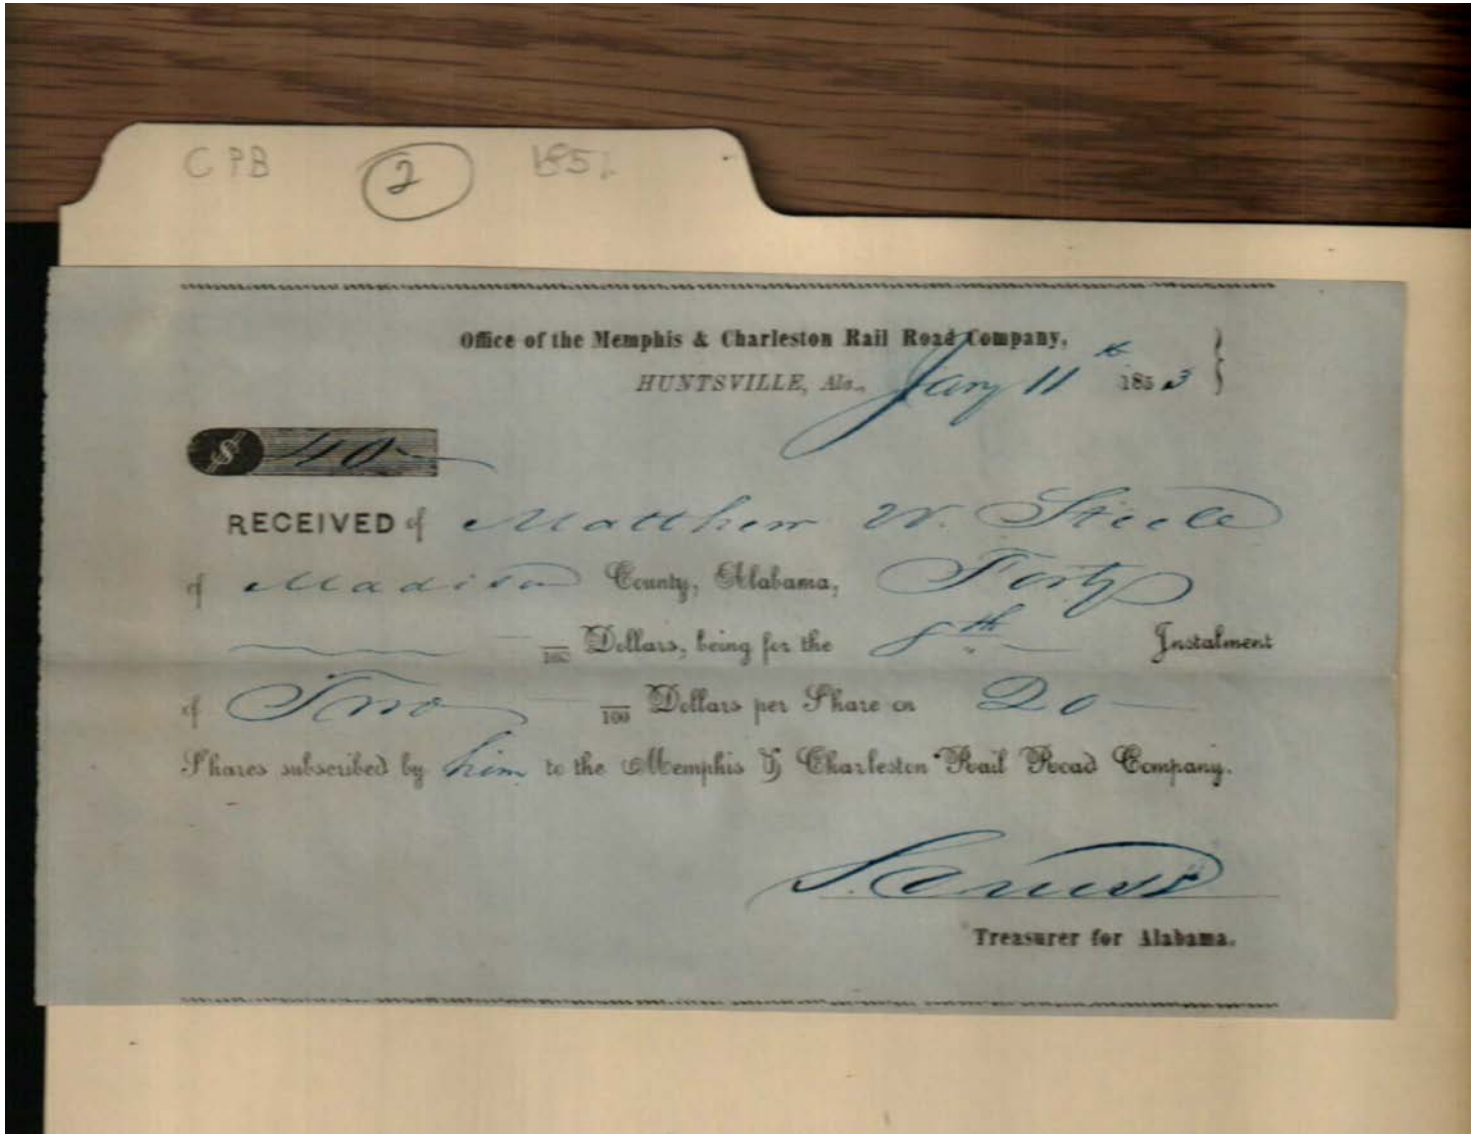 CPB 2 185
Office of the Memphis & Charleston Rail Road Company,
HUNTSVILLE, Ala., Jany 11th 1853
$ 40
RECEIVED of Matthew W. Steele
of Madison County, Alabama, Forty
/100 Dollars, being for the 8th Instalment
of Two /100 Dollars per Share on 20
Shares subscribed by him to the Memphis & Charleston Rail Road Company.
Treasurer for Alabama.